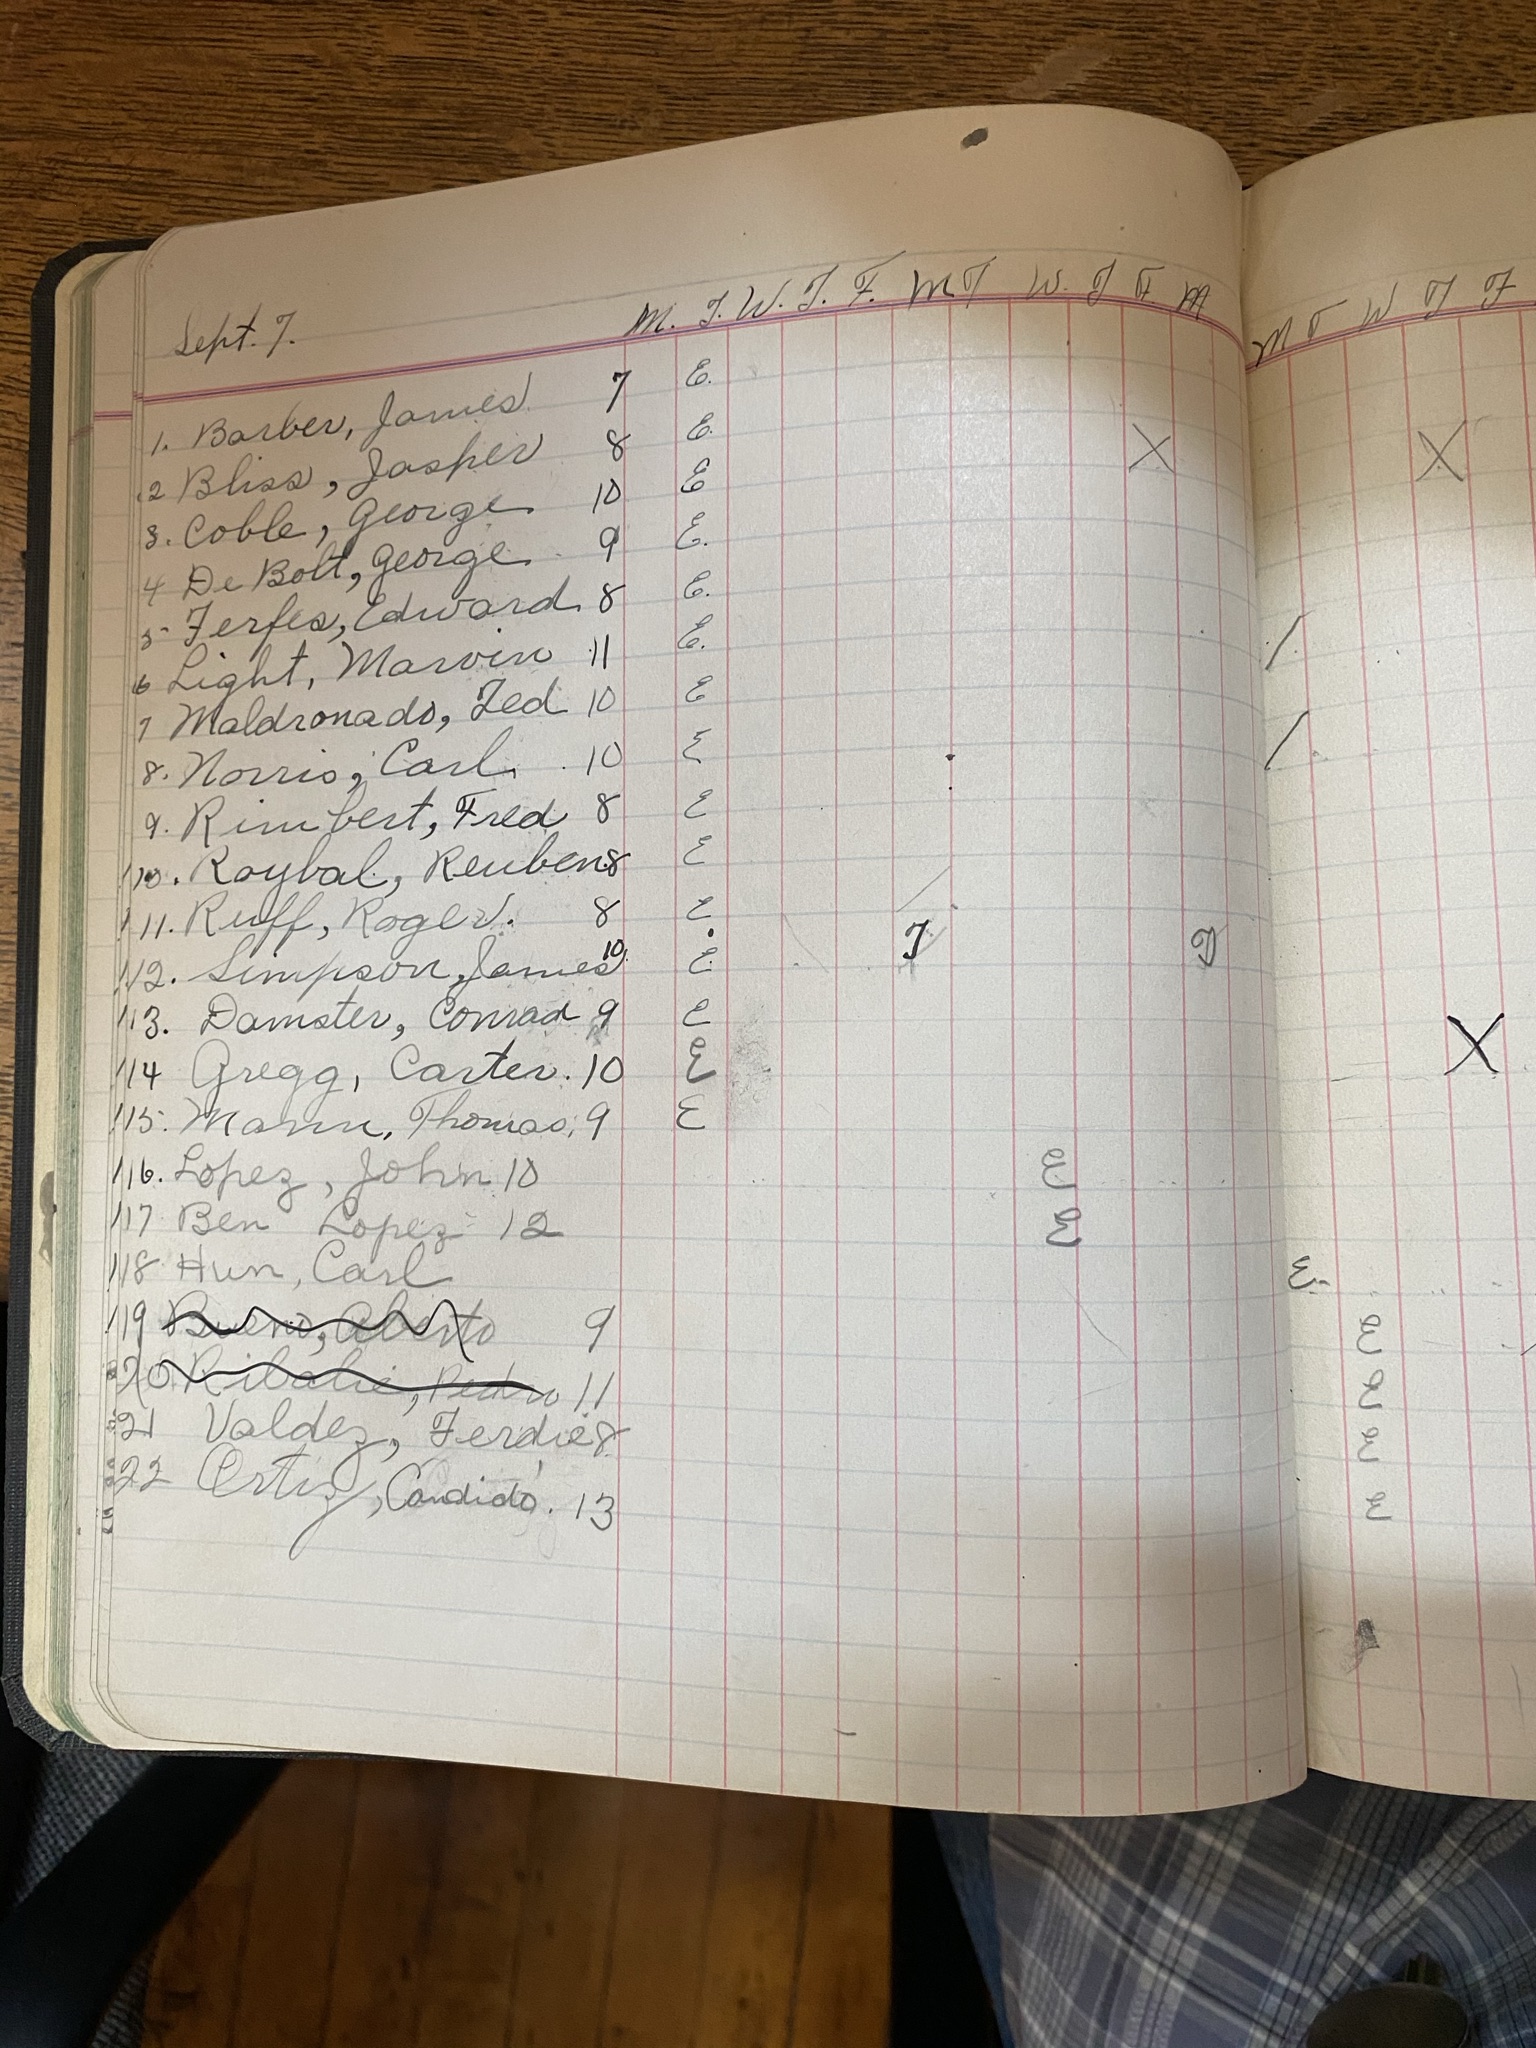 Sept. 7. M. T. W. T. F. M T W. T F. M M T W T F
1. Barber, James 7 E.
2 Bliss, Jasper 8 E. X X
3. Coble, George 10 E
4 De Bolt, George 9 E.
5 Ferfes, Edward 8 E.
6 Light, Marvin 11 E. /
7 Maldronado, Ted 10 E
8. Norris, Carl 10 E /
9. Rimbert, Fred 8 E
10. Roybal, Reuben 8 E
11. Ruff, Roger. 8 E
12. Simpson, James 10 E. T T
13. Damster, Conrad 9 E
14 Gregg, Carter. 10 E X
15. Mann, Thomas, 9 E
16. Lopez, John 10 E
17 Ben Lopez 12 E
18 Hun, Carl E
19 Bueno, Alberto 9 E
20 Pedro 11 E
21 Valdez, Ferdie 8 E
22 Ortiz, Candido. 13 E